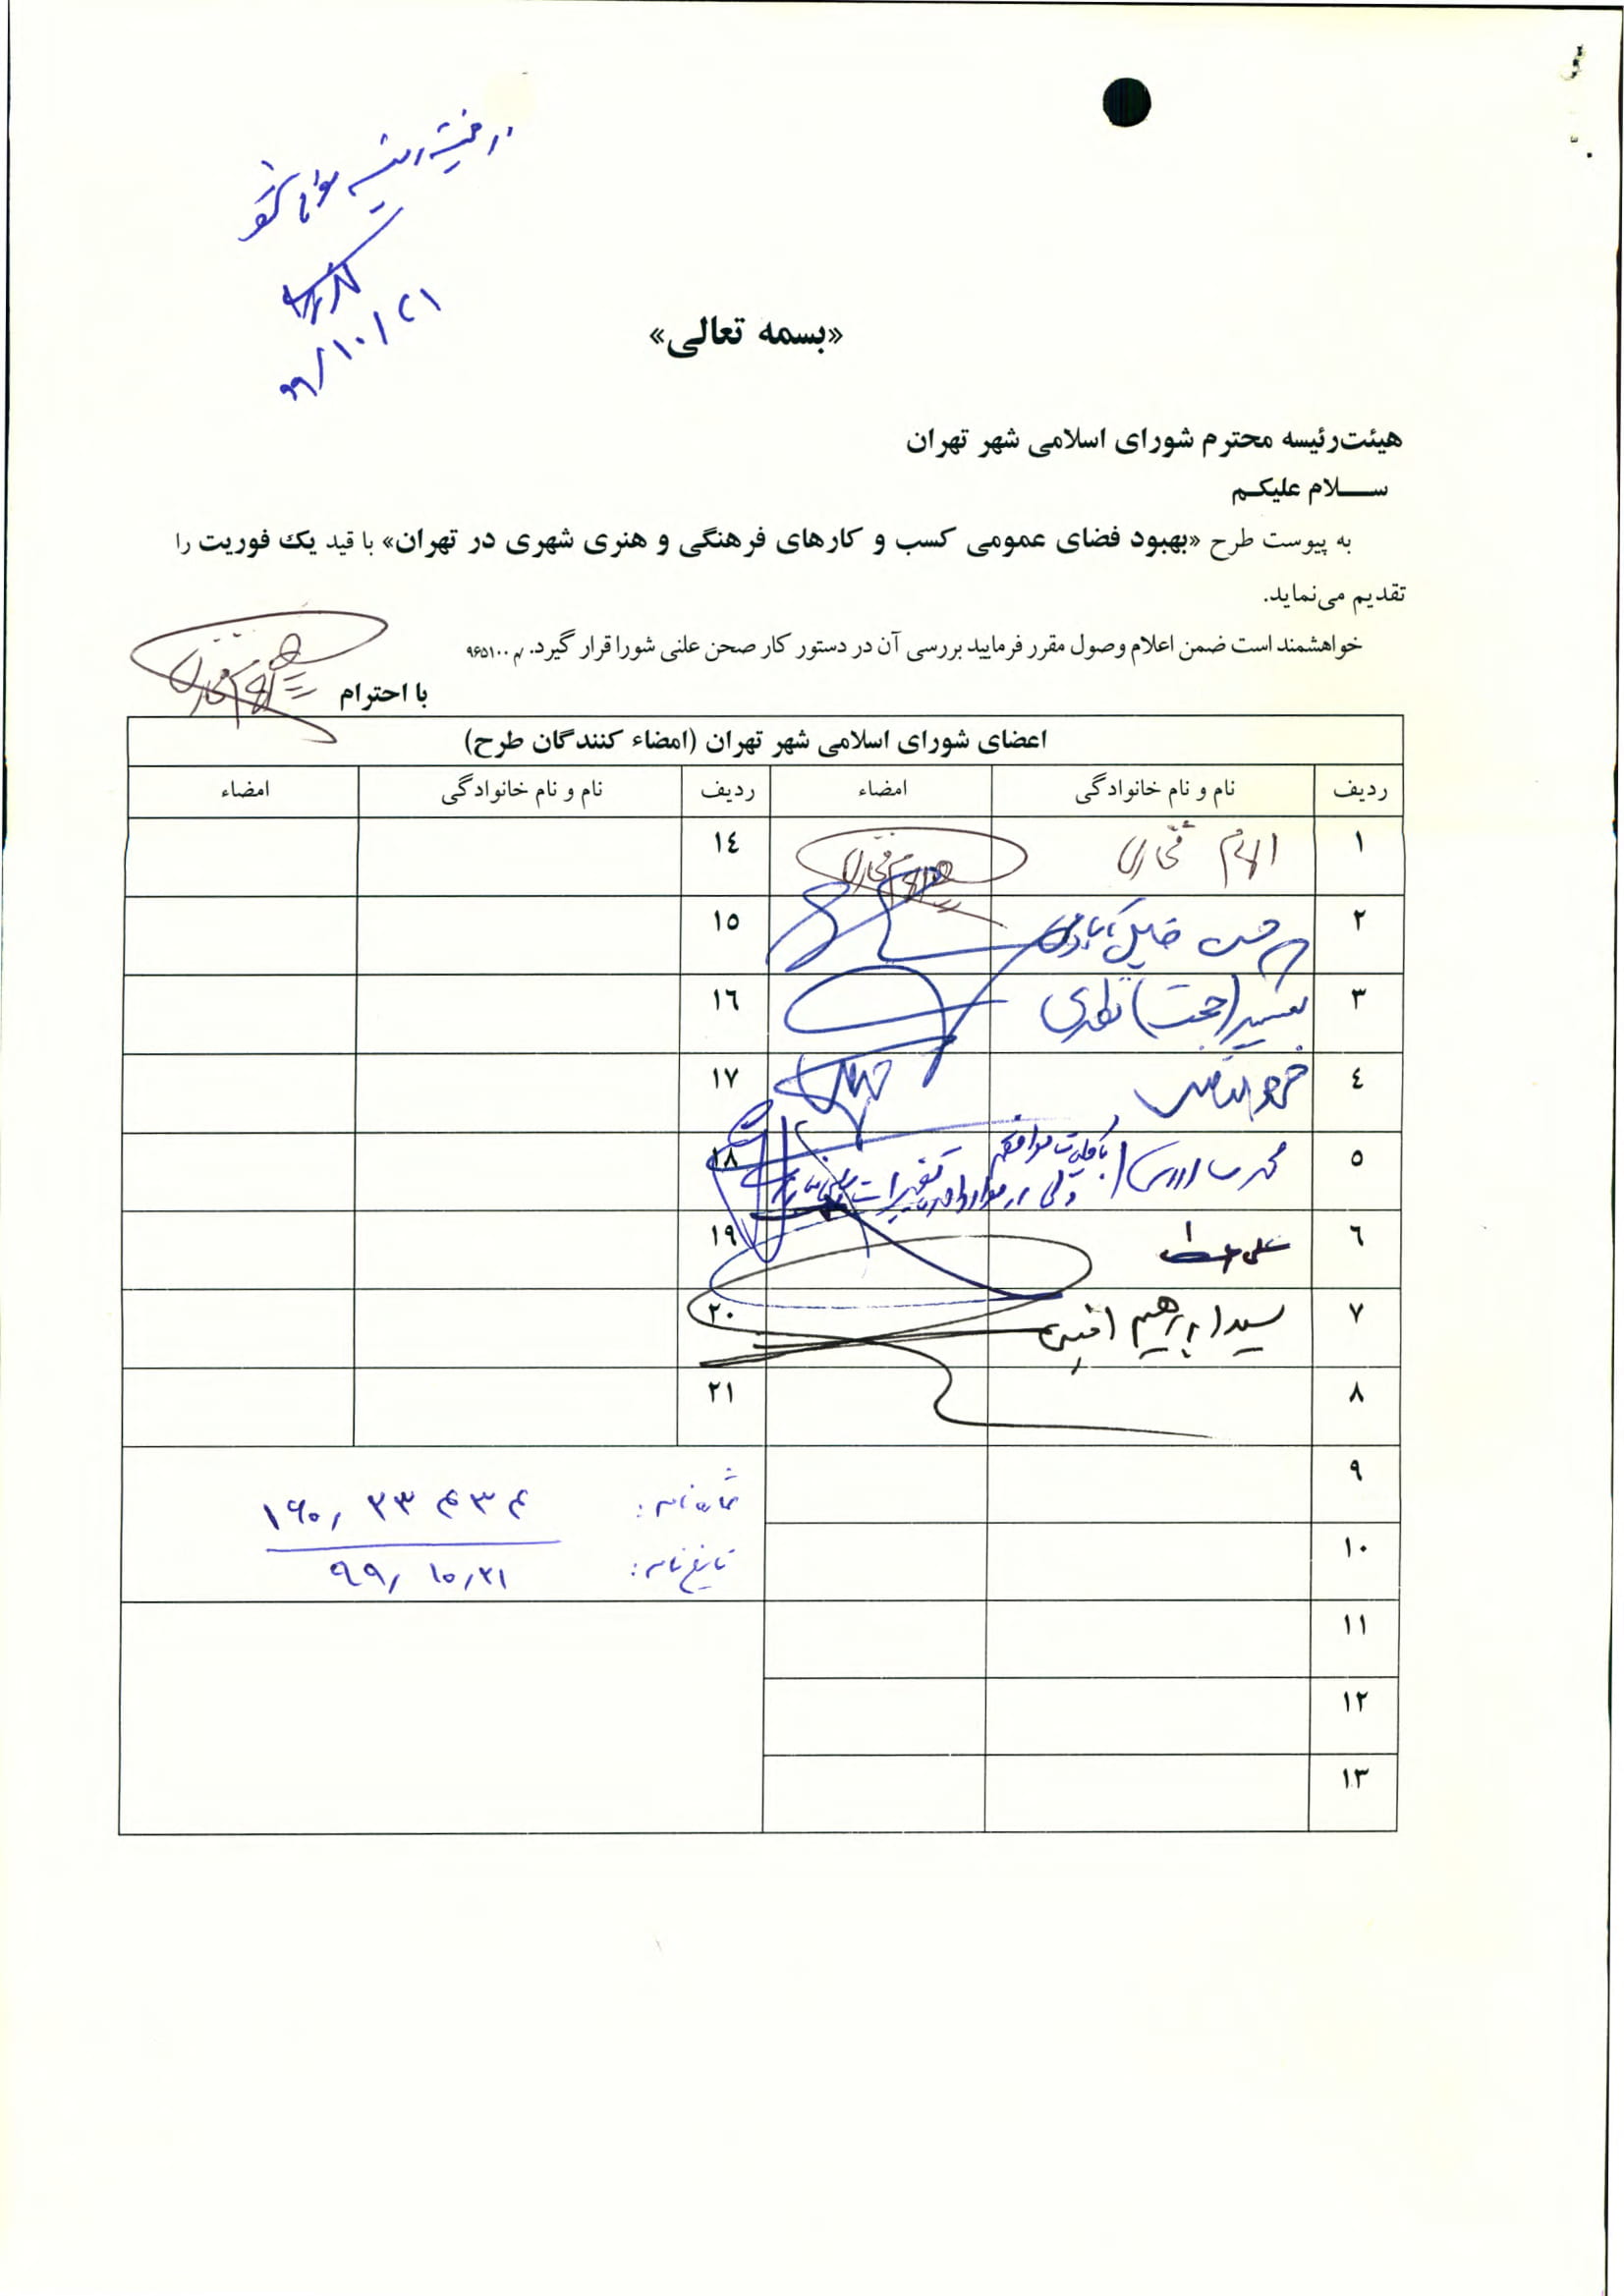 ۹۹/۱۰/۲۱
«بسمه تعالی»
هیئت‌رئیسه محترم شورای اسلامی شهر تهران
ســـلام علیکـم
به پیوست طرح «بهبود فضای عمومی کسب و کارهای فرهنگی و هنری شهری در تهران» با قید یک فوریت را
تقدیم می‌نماید.
خواهشمند است ضمن اعلام وصول مقرر فرمایید بررسی آن در دستور کار صحن علنی شورا قرار گیرد. م ۹۶۵۱۰۰
با احترام
اعضای شورای اسلامی شهر تهران (امضاء کنندگان طرح)
ردیف نام و نام خانوادگی امضاء ردیف نام و نام خانوادگی امضاء
۱ الهام فخاری ۱٤
۲ حسن خلیل آبادی ۱٥
۳ (حجت) نظری ۱٦
٤ ۱۷
٥ با کلیات موافقم ۱۸
ولی در موارد تغییرات
٦ علی عطا ۱۹
۷ سید ابراهیم امینی ۲۰
۸ ۲۱
۹ شماره نامه: ۱۶۰/ ۲۳۴۳۴
۱۰ تاریخ نامه: ۹۹/ ۱۰/۲۱
۱۱
۱۲
۱۳